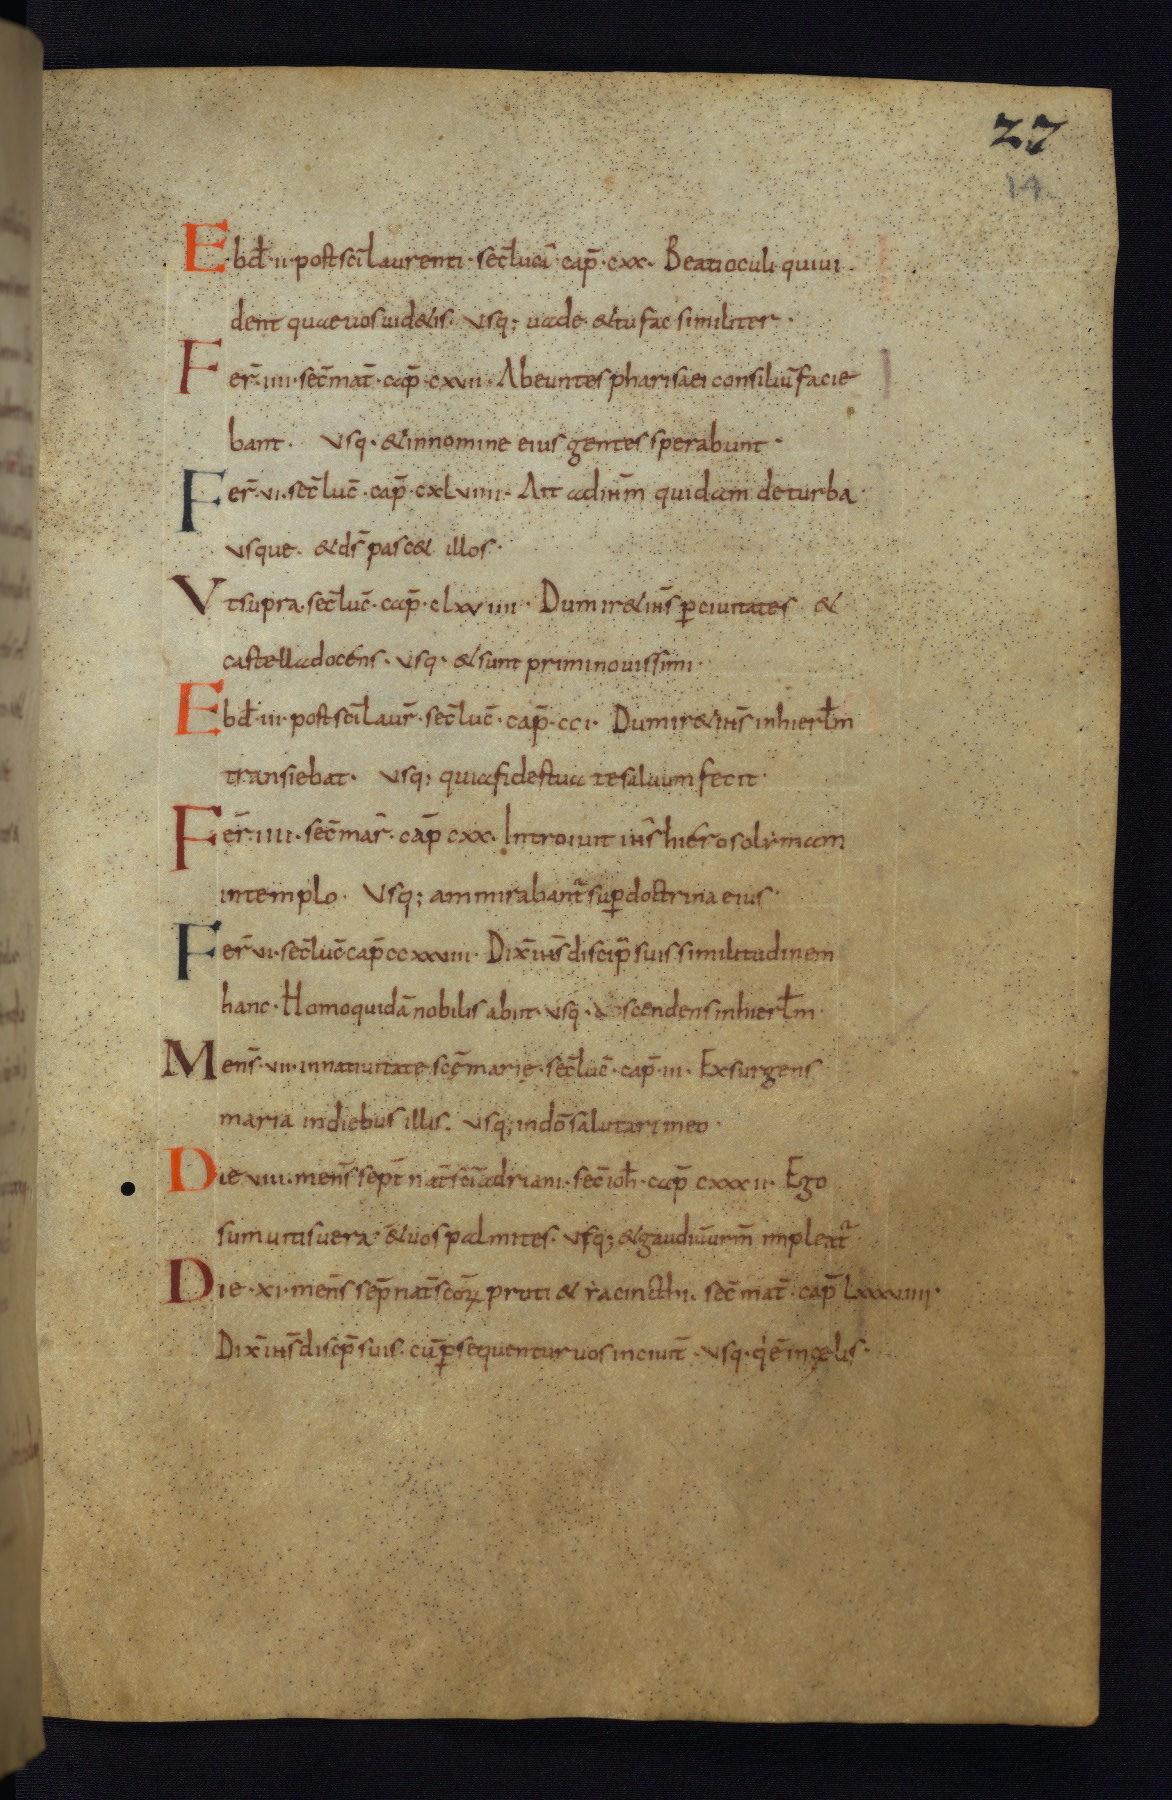 27
14
Ebđ·ii·post sc̄i laurenti·sec̄ lucā·cap̄·cxx·Beati oculi qui vi
dent quae vos videtis·Vsq; vade & tu fac similiter·
Fer̄·iiii·sec̄ mat̄·cap̄·cxvii·Abeuntes pharisaei consiliū facie
bant·Vsq·& in nomine eius gentes sperabunt·
Fer̄·vi·sec̄ luc̄·cap̄·cxlviiii·Ait ad ih̄m quidam de turba·
vsque·& ds̄ pasc& illos·
Vt supra·sec̄ luc̄·cap̄·clxviiii·Dum ir& ih̄s ꝑ ciuitates &
castella docens·vsq·& sunt primi nouissimi·
Ebđ·iii·post sc̄i laur̄·sec̄ luc̄·cap̄·cci·Dum ir& ih̄s in hierl̄m
transiebat·Vsq; quia fides tua te saluum fecit·
Fer̄·iiii·sec̄ mar̄·cap̄ cxx·Introiuit ih̄s hierosolymam
in templo·Vsq; ammirabant̄ suꝑ doctrina eius·
Fer̄ vi·sec̄ luc̄ cap̄ ccxxviii·Dix̄ ih̄s discip̄ suis similitudinem
hanc·Homo quidā nobilis abiit·vsq·ascendens in hierl̄m·
Mens̄·vii·in natiuitate scę̄ marię·sec̄ luc̄·cap̄·iii·Exsurgens
maria in diebus illis·Vsq; in dō salutari meo·
Die viii·mens̄ sept̄ nat̄ sc̄i adriani·sec̄ ioh̄·cap̄ cxxxii·Ego
sum uitis uera·& uos palmites·Vsq; & gaudiū urm̄ impleat̄·
Die·xi·mens̄ sep̄ nat̄ scōꝝ proti & iacincthi·sec̄ mat̄·cap̄ lxxxviiii·
Dix̄ ih̄s discip̄ suis·cū ꝑsequentur uos in ciuit̄·vsq·q̇ ē in cęlis·